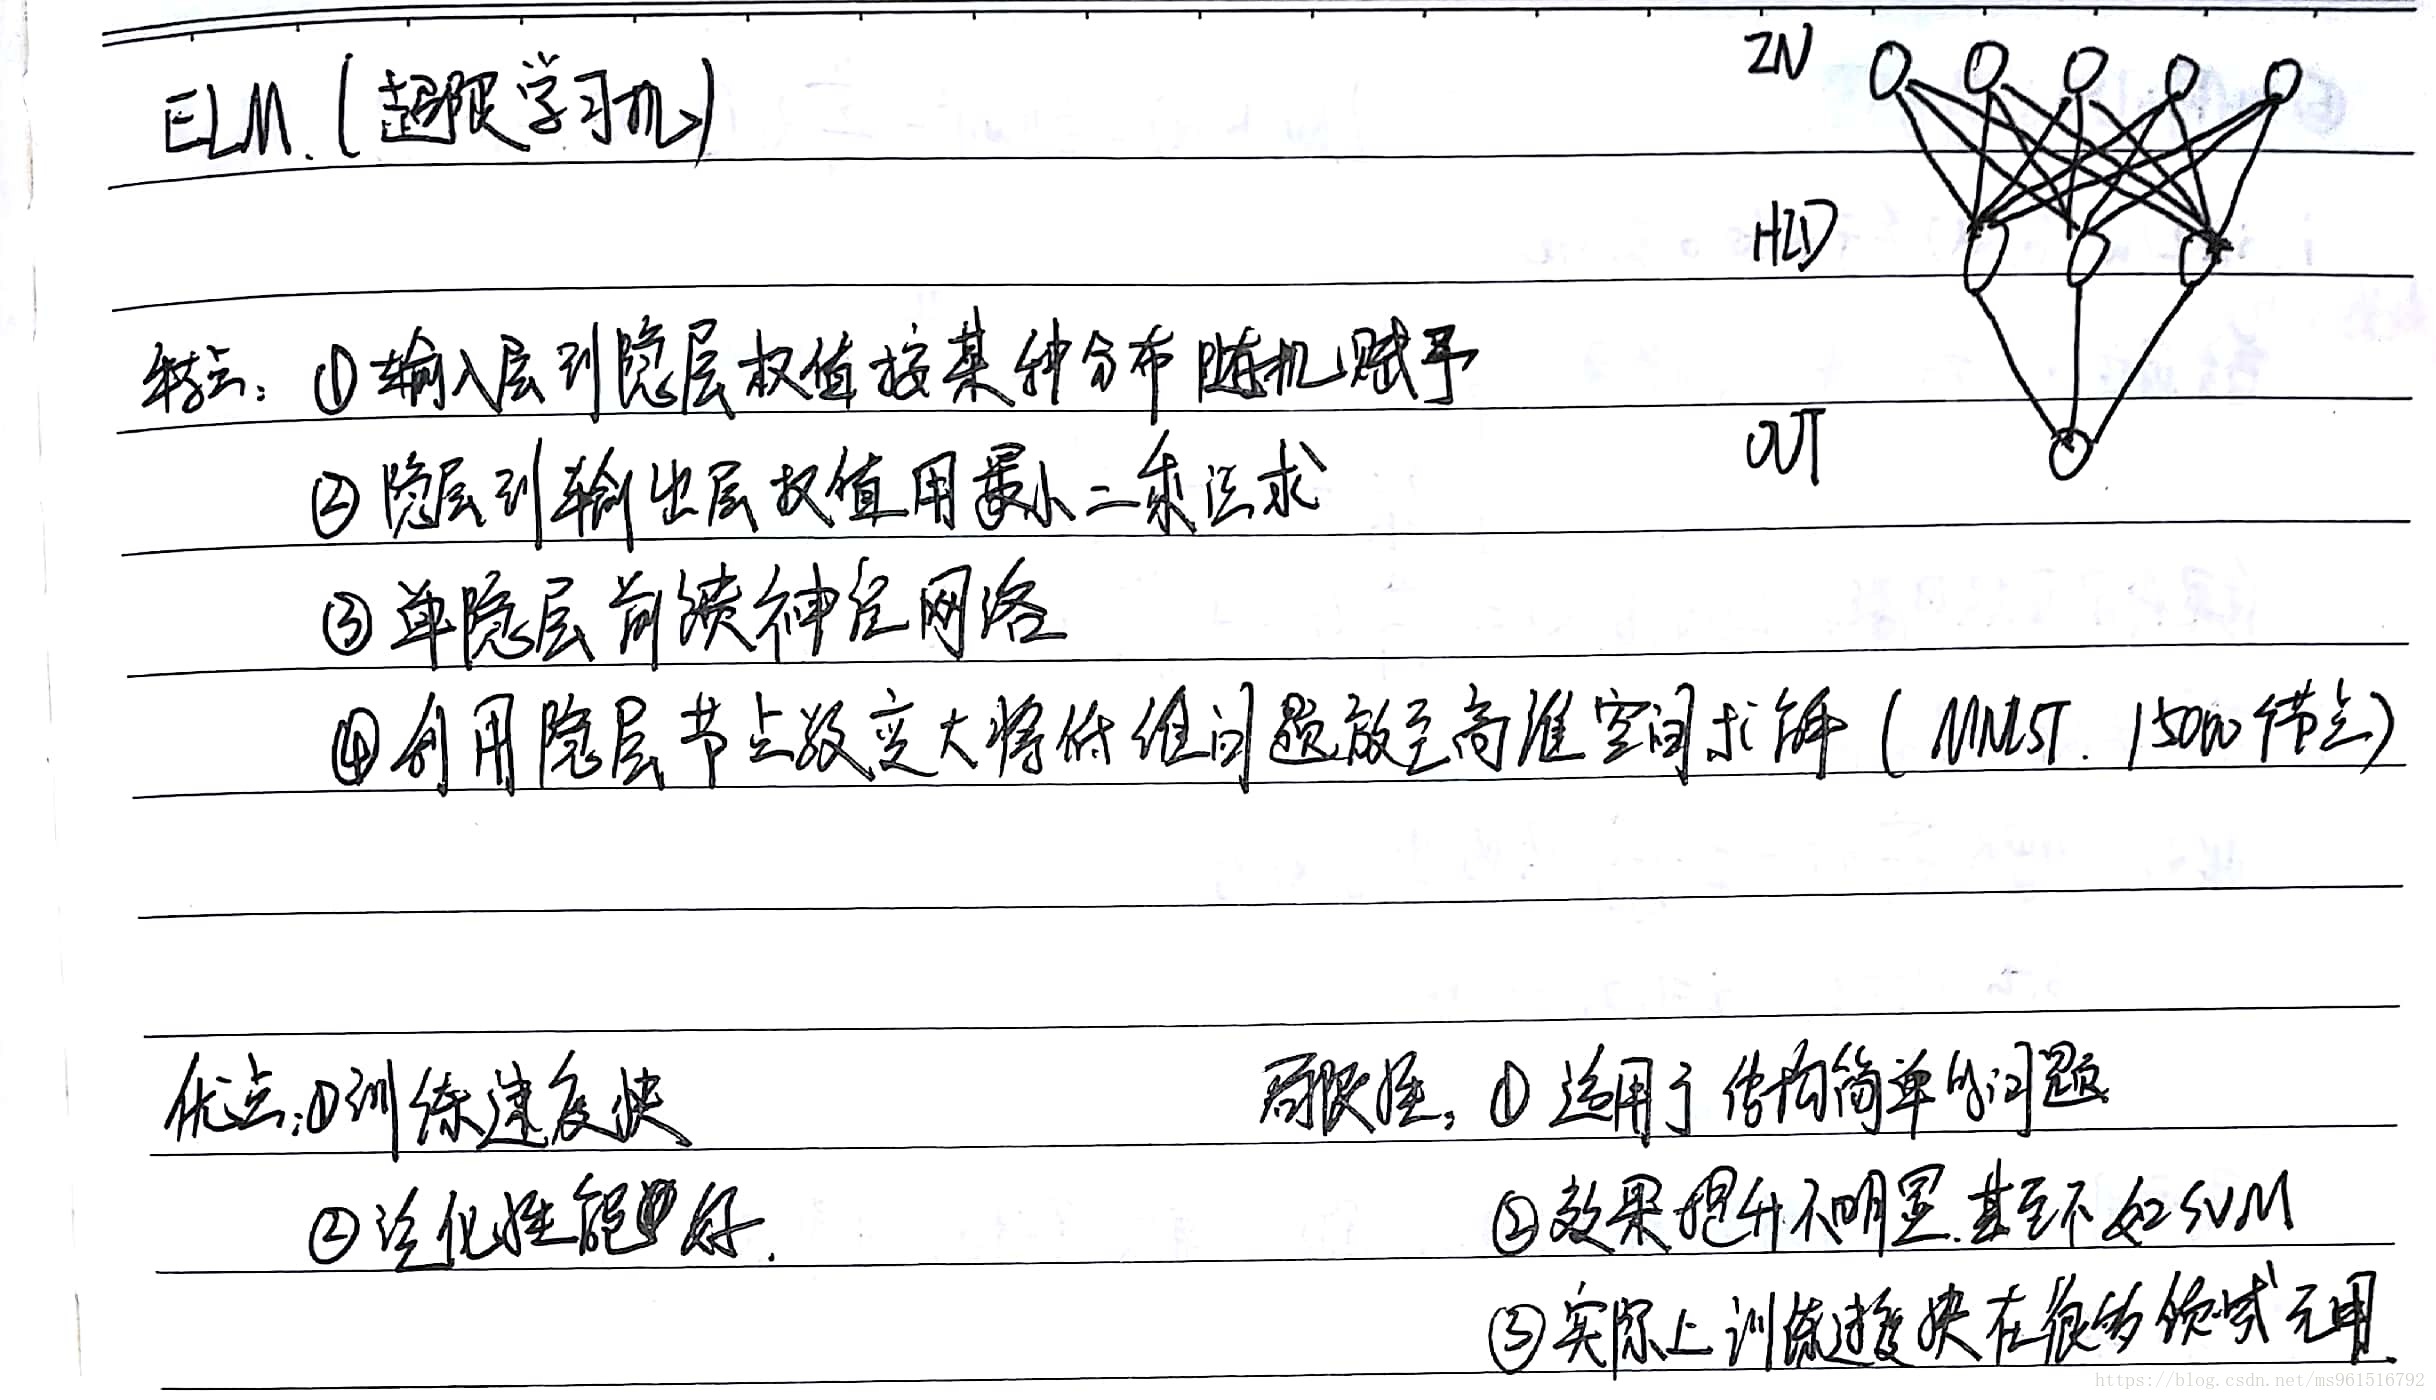 ELM.(超限学习机)
IN
HID
OUT
特点：①输入层到隐层权值按某种分布随机赋予
②隐层到输出层权值用最小二乘法求
③单隐层前馈神经网络
④利用隐层节点数变大将低维问题放至高维空间求解(MNIST.15000节点)
优点：①训练速度快
②泛化性能好.
局限性：①适用于结构简单的问题
②效果提升不明显.甚至不如SVM
③实际上训练速度快在很多领域无用.
https://blog.csdn.net/ms961516792